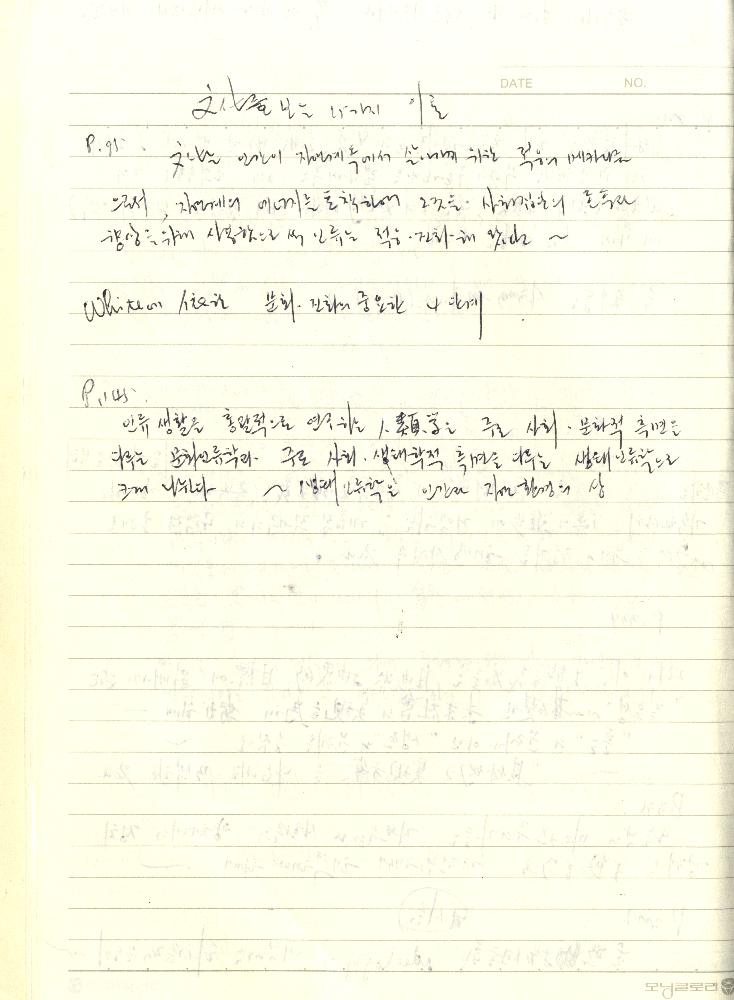 DATE NO.
文化를 보는 15가지 이론
P.95.
文化는 인간이 자연계 속에서 살아가기 위한 적응의 메카니즘
으로서, 자연계의 에너지를 포착하여 그것을 사회집단의
향상을 위해 사용함으로써 인류는 적응·진화해 왔다고 ~
White에 의한 문화·진화의 중요한 4 단계
P.145.
인류 생활을 총괄적으로 연구하는 人類學은 주로 사회·문화적 측면을
다루는 문화인류학과 주로 사회·생태학적 측면을 다루는 생태인류학으로
크게 나뉜다 ~ 생태인류학은 인간과 자연환경의 상
모닝글로리